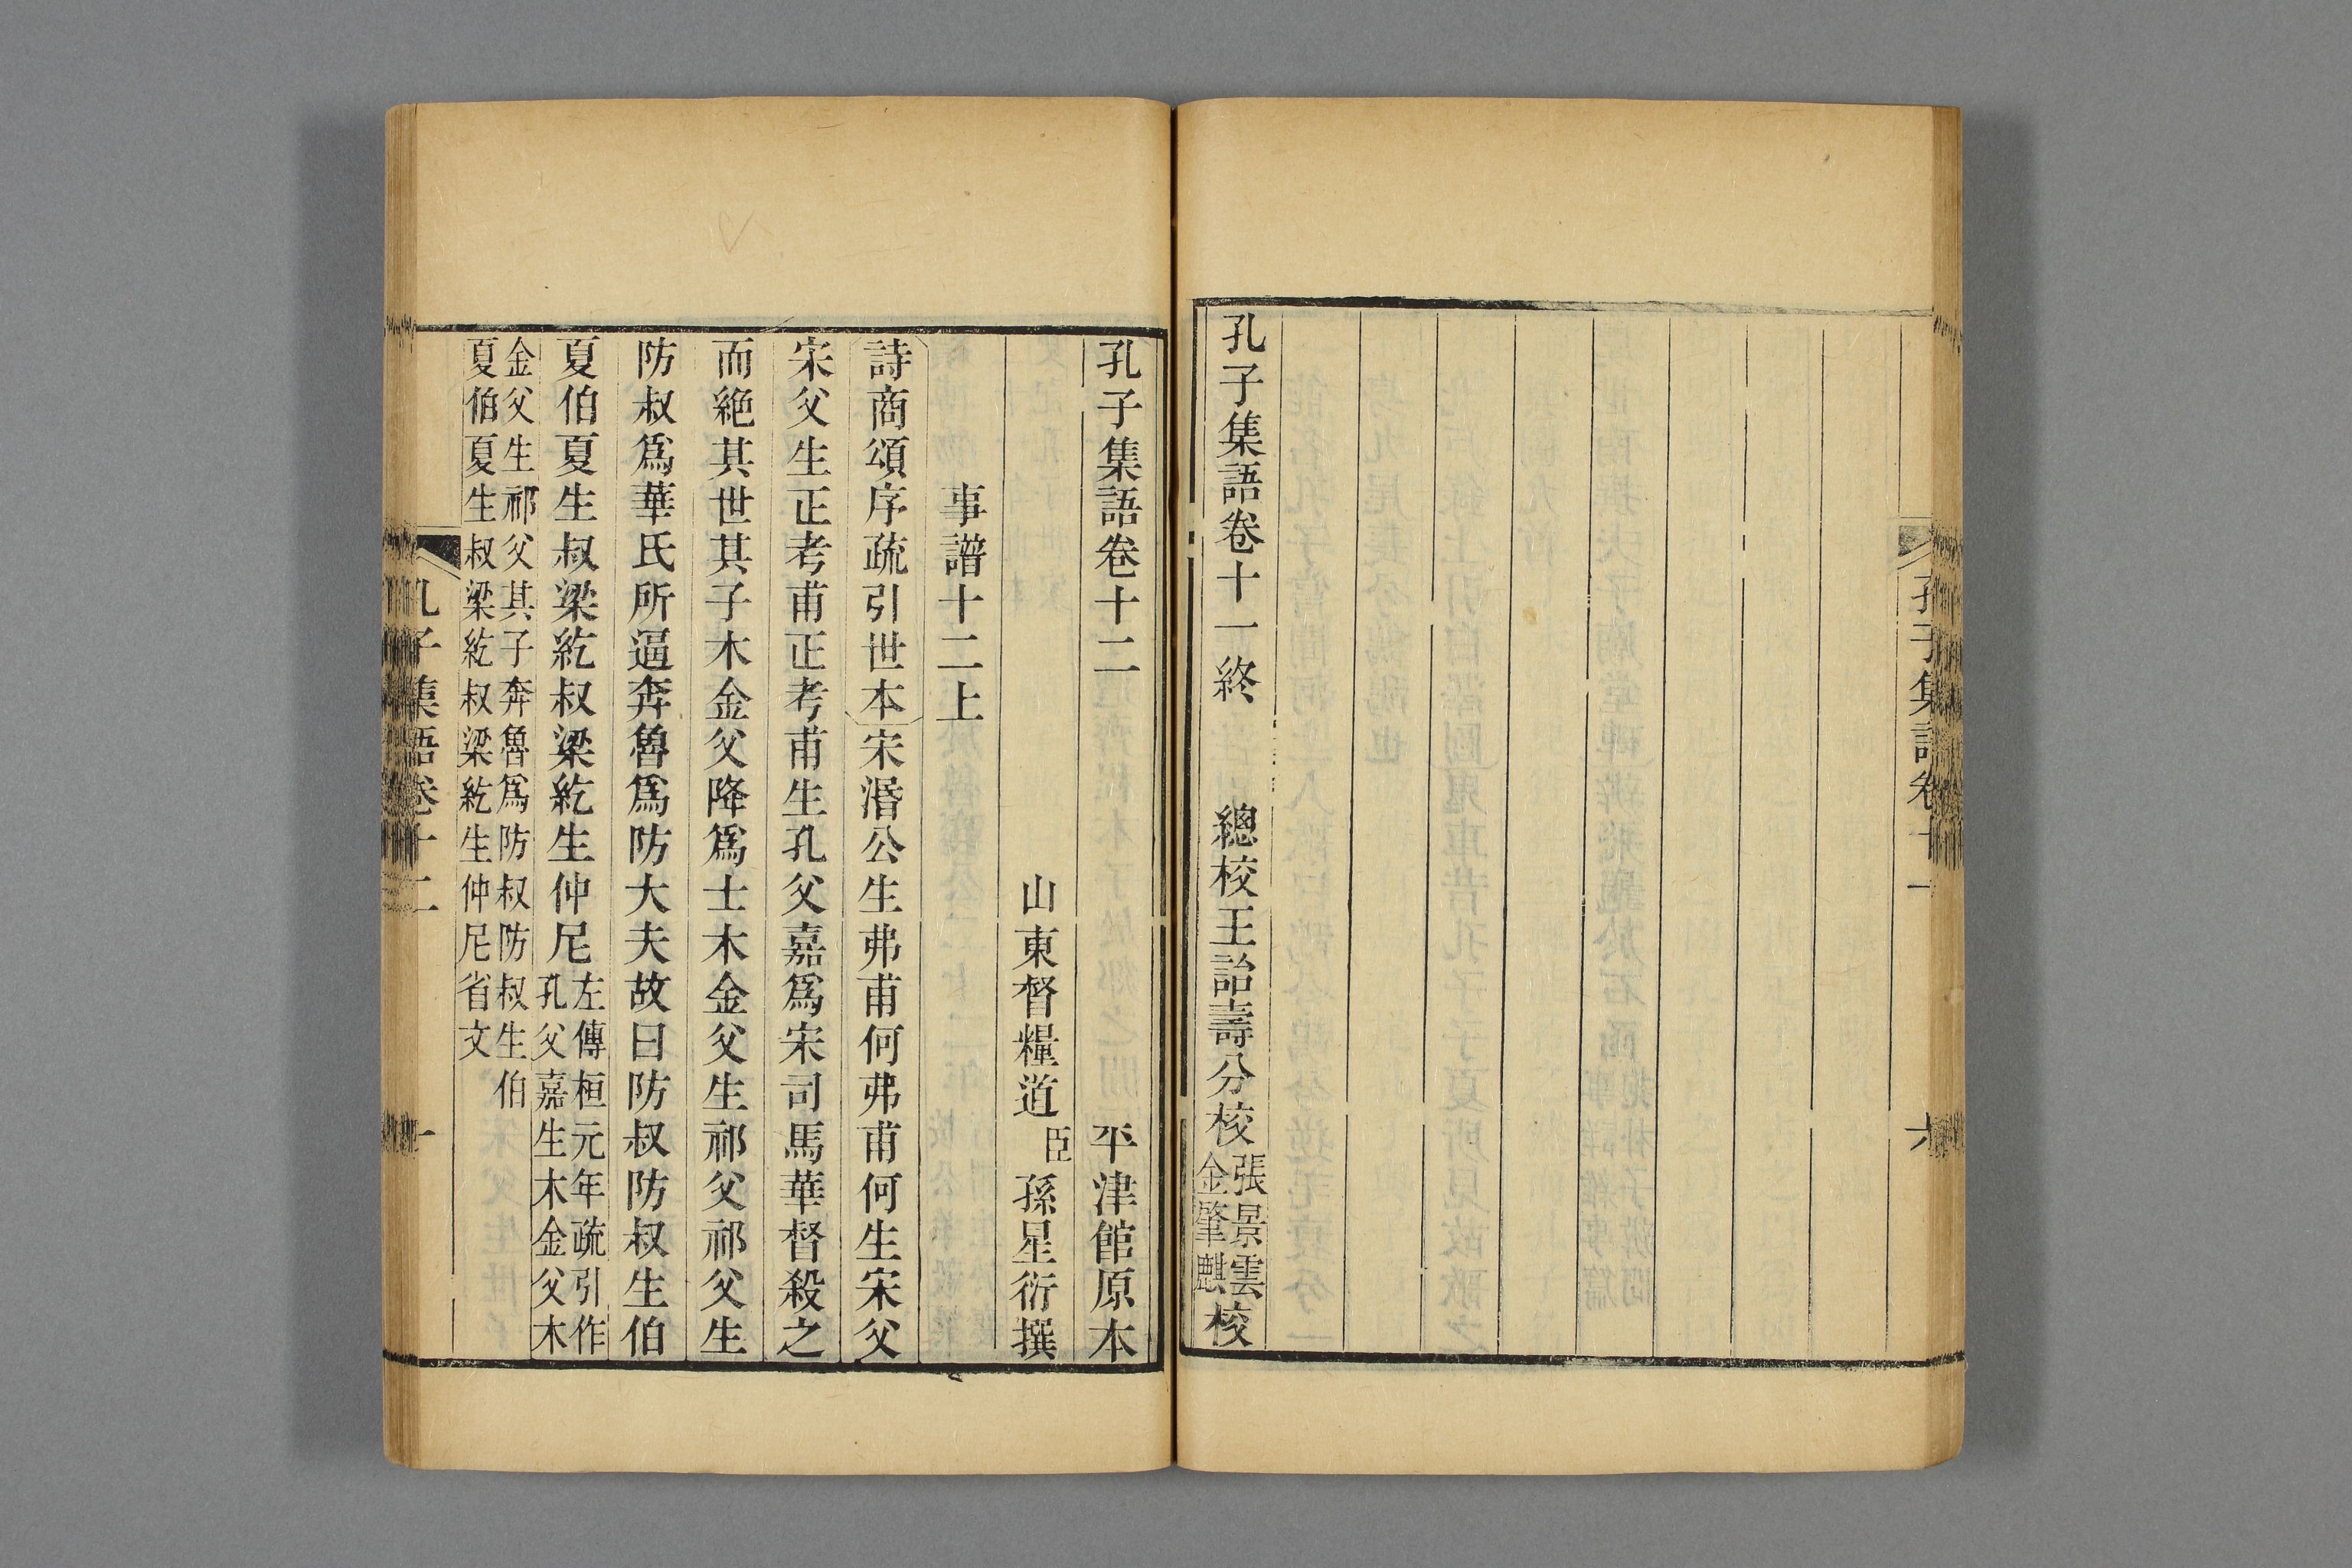 孔子集語卷十一
六
孔子集語卷十一終 總校王詒壽分校張景雲金肇麒校
孔子集語卷十二 平津館原本
山東督糧道臣孫星衍撰
事譜十二上
詩商頌序疏引世本宋湣公生弗甫何弗甫何生宋父
宋父生正考甫正考甫生孔父嘉爲宋司馬華督殺之
而絕其世其子木金父降爲士木金父生祁父祁父生
防叔爲華氏所逼奔魯爲防大夫故曰防叔防叔生伯
夏伯夏生叔梁紇叔梁紇生仲尼左傳桓元年疏引作
孔父嘉生木金父木
金父生祁父其子奔魯爲防叔防叔生伯
夏伯夏生叔梁紇叔梁紇生仲尼省文
孔子集語卷十二
一